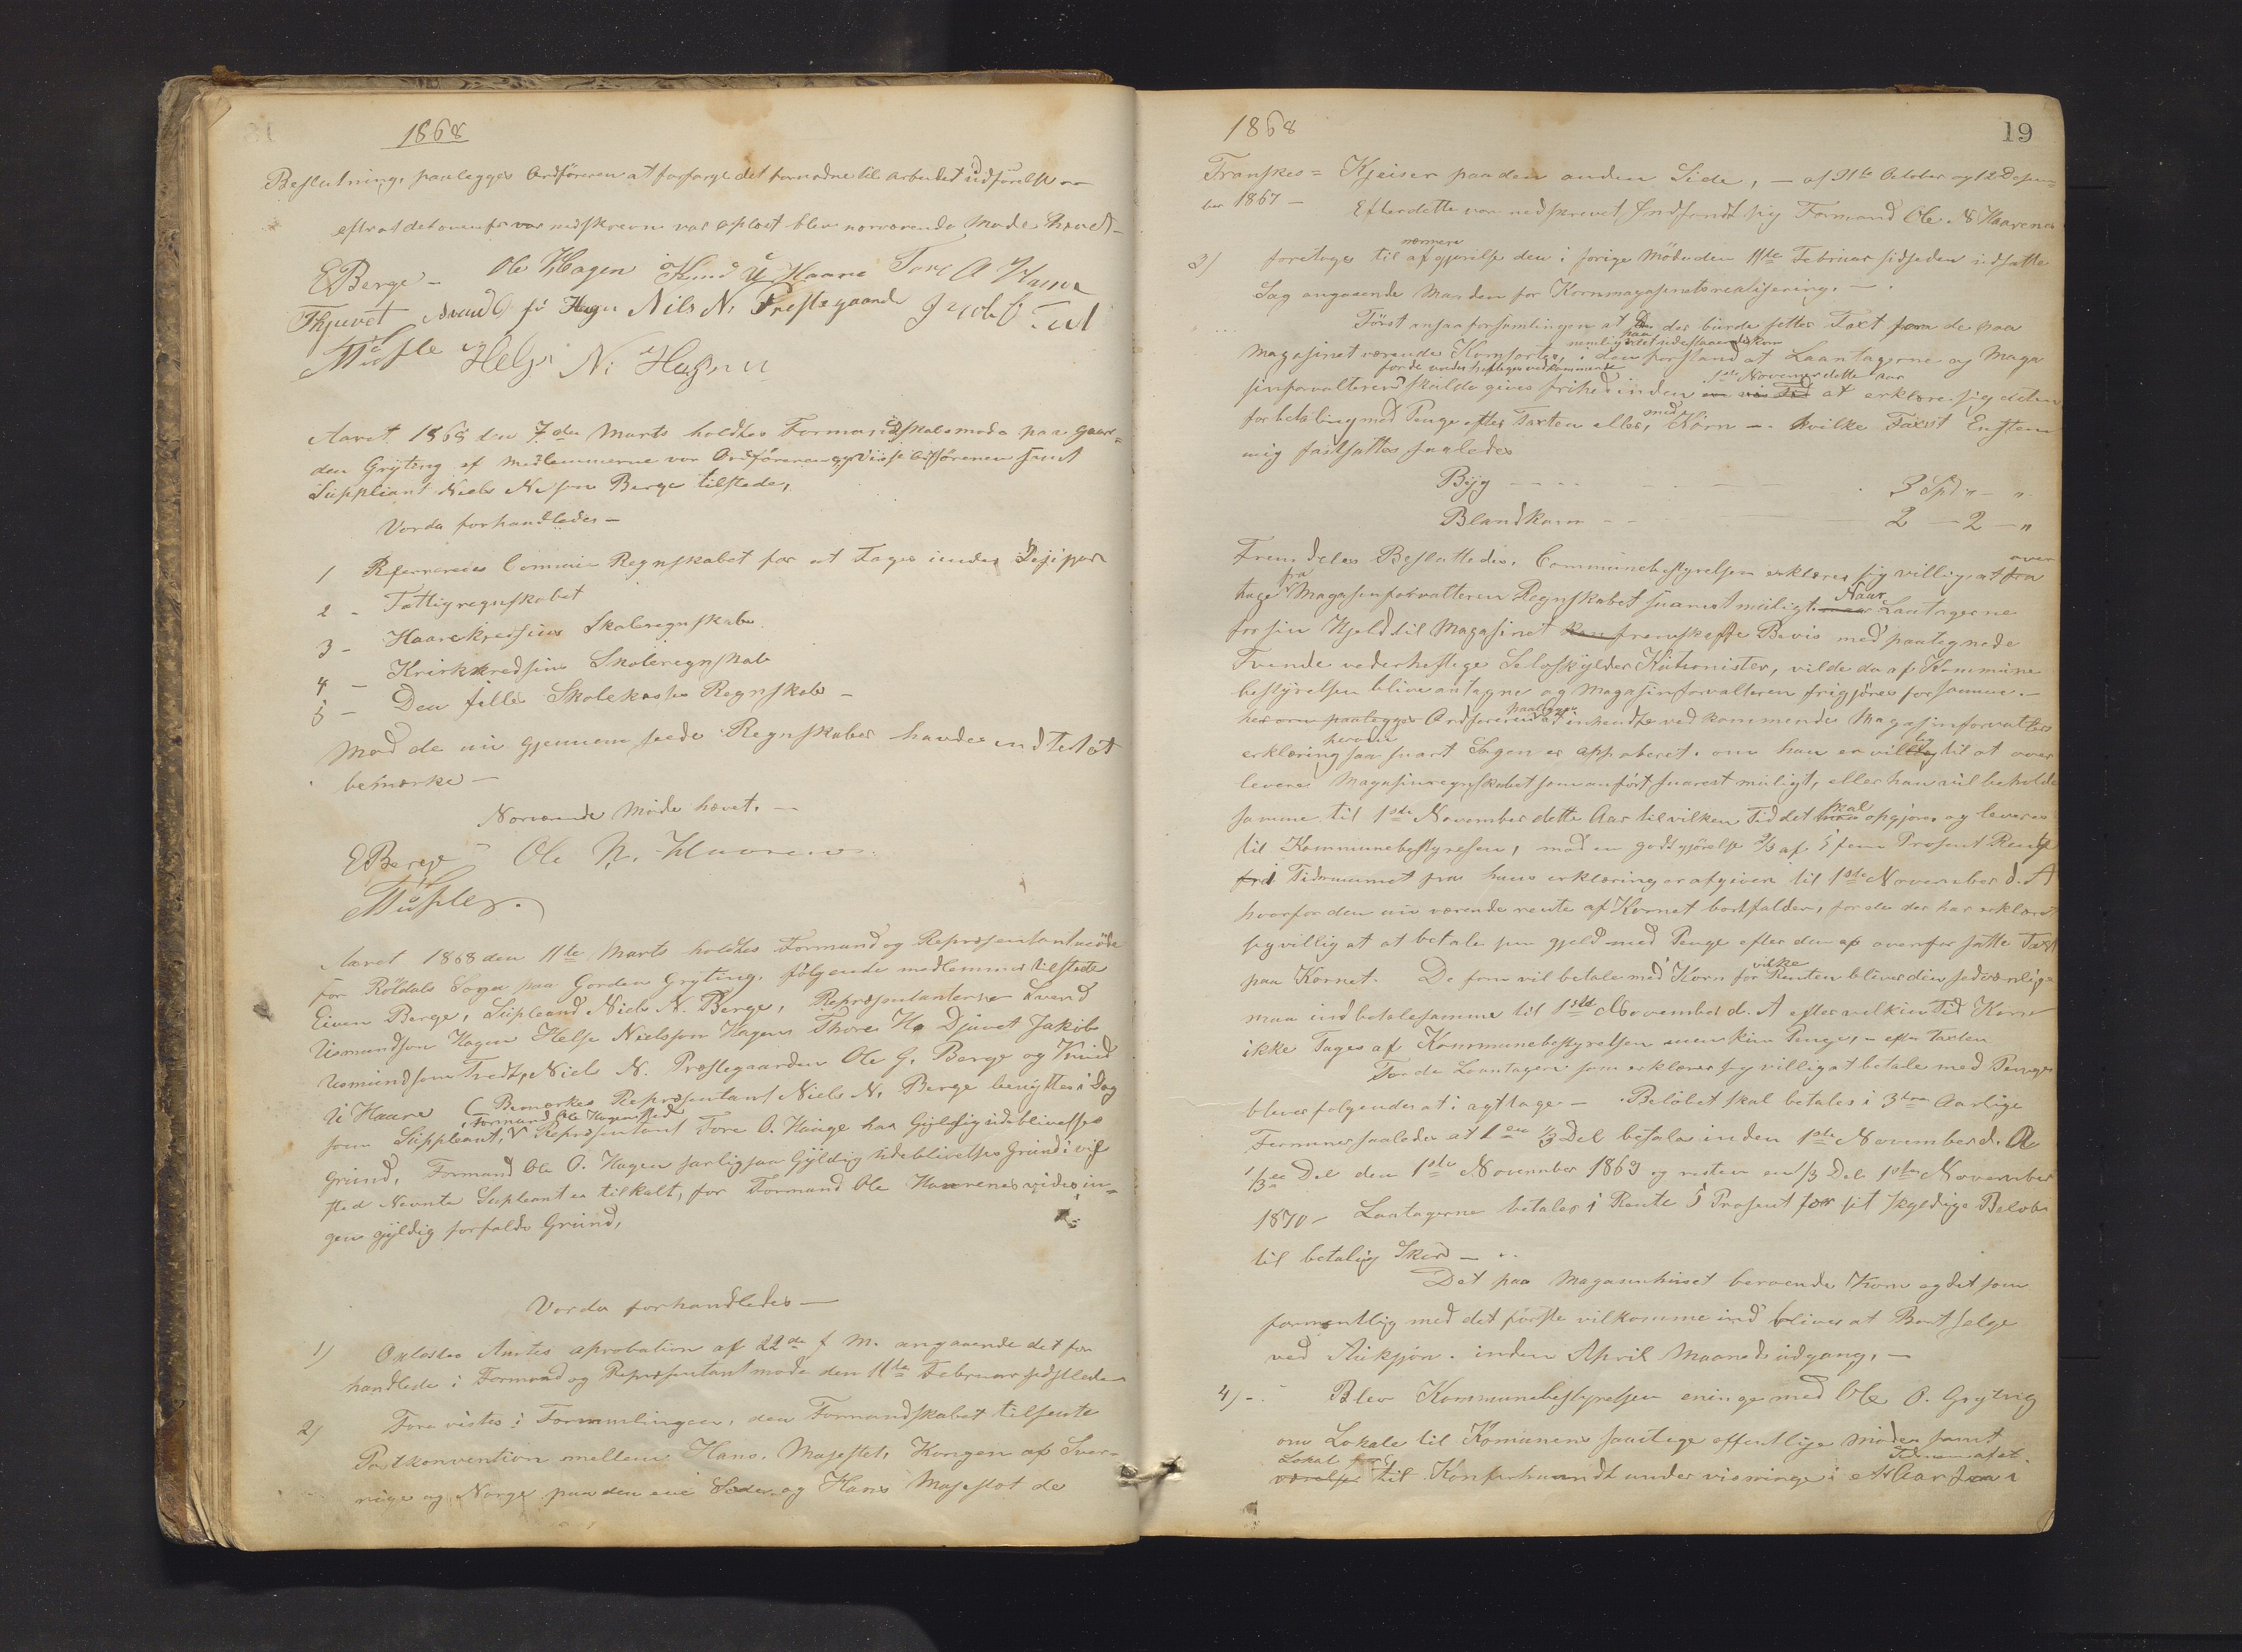 1868
Beslutning, paalegges Ordföreren at forsørge det fornødne til arbeidets udförelse
efter at det ovenfor var nedskreven var oplæst blev nærværende Møde hævet
E Berge – Ole Hagen Knud U Haare Tore
Nils N. Prestegaard Jacob
Helje N. Hagen
Aaret 1868 den 7de Marts holdtes Formandskabsmøde paa gaar-
den Grÿting af medlemmerne var Ordföreren og Viseordföreren samt
Süppliant Niels Nilsen Berge tilstede,
Vorda forhandledes –
1 Refereredes Commune Regnskabet for at Tages under Desisjon
2 – Fattigregnskabet
3 – Haarekredsens Skoleregnskab
4 – Kredsens Skoleregnskab
5 – Den felles Skolekasses Regnskab –
Mod de nu gjennemseede Regnskaber havdes intet at
bemærke –
Nærværende Møde hævet. –
E Berge Ole N. Haarene
Aaret 1868 den 11te Marts holdtes Formand og Repræsentantmöde
for Röldals Sogn paa Gorden Grÿting. følgende medlemmer tilstede
Eiven Berge, Süpleand Niels N. Berge, Repræsentanterne Svend
Asmundson Hagen Helje Nielsson Hagen Thore H. Djuvet Jakob
Asmundson Tvedt, Niels N. Præstegaarden Ole G. Berge og Knud
U Haare (Bemærkes Repræsentant Niels N. Berge benyttes i Dag
som Süppleant, i Formand Ole Hagens sted Repræsentant Tore O. Hauge har Gyldig udeblivelses
grund, Formand Ole O. Hagen særlig saa Gÿldig Udeblivelses Grund i vis
sted Nevnte Supleant er tilkalt, for Formand Ole Haarenes vides in-
gen gÿldig forfalds Grund,
Vorda forhandledes –
1) Oplæstes Amtes aprobation af 22de f. M. angaaende det for
handlede i Formand og Repræsentant møde den 11te Februar sidstleden
2) Fore vistes i Formamlingen, den Formandskabet tilsente
Postkonvention mellem Hans. Majestet, Kongen af Sver-
rige og Norge paa den ene Side, og Hans Majestæt de
1868
19
Franskes = Kjeiser paa den anden Side, – af October og 12 Desem-
ber 1867 – Efter dette var nedskrevet Indfandt sig Formand Ole N Haarene
3) foretoges til nærmere afgjørelse den i forige Möde den 11te Februar sidsleden udsatte
Sag angaaende Maaden for Kornmagasinets realisering. –
Först ansaa forsamlingen at der burde settes Taxt paa de paa
Magasinet værende Kornsorter, nemlig det udestaaende Korn i den forstand at Laantagerne og Maga
sinforvalteren for de vederheftiges vedkommende skulde gives frihed inden 1ste November dette Aar at erklære sig
for betaling med Penge efter Taxten eller, med Korn –. hvilke Taxst Enstem
mig fastsattes saaledes
Bÿg 3 Spd " – "
Blandkorn 2 – 2 – "
Fremdeles Besluttedes. Communebestyrelsen erklærer sig villig at over
tage fra Magasinforvalteren Regnskabet snarest muligt. Naar Laantagerne
for sin Gjeld til Magasinet fremskaffe Bevis med paategnede
Tvende vederheftige Selvskÿldner Kautionister, vilde da af Kommune
bestÿrelsen blive antagne og Magasinforvalteren frigjöres for samme. –
her om paalegges Ordföreren at inhendte vedkommende Magasinforvalter
erklæring herom saa snart Sagen er approberet. om han er villig til at over
levere Magasinregnskabet som anført snarest muligt, eller han vil beholde
samme til 1ste November dette Aar til vilken Tid det skal opgjøres og leveres
til Kommunebestÿrelsen, mod en godtgjörelse 2/3 af 5 fem Prosent Rente
i Tidsrummet fra hans erklæring er afgiven til 1ste November d. A
hvorfor den nu værende rente af Kornet bortfalder, for de der har erklæret
sig villig at at betale sin gjeld med Penge efter den af ovenfor satte Taxt
paa Kornet. De som vil betale med Korn for vilke Renten bliver den sedvanlig-
maa indbetale samme til 1ste November d. A efter vilken Tid Korn
ikke Tages af Kommunebestÿrelsen men kun Penge, – efter Taxten
For de Laantagere som erklærer sig villig at betale med Penge
bliver følgende at i agttage – Belöbet skal betales i 3de Aarlige
Terminer saaledes at 1en 1/3 Del betales inden 1ste November d. A
1/3 Del den 1ste November 1869 og resten en 1/3 Del 1ste November
1870 – Laantagerne betaler i Rente 5 Prosent for sit skyldige Belöb
til betaling Skeer – ..
Det paa Magasinhuset beroende Korn og det som
formentlig med det förste vil komme ind bliver at Bortselge
ved Aukjön. inden April Maaneds udgang, –
4) – Blev Kommunebestÿrelsen eninge med Ole O. Grÿting
om Lokale til Komunens samtlige offentlige møder samt
Lokal for til Konfirmandt undervisninge i et Aar fra